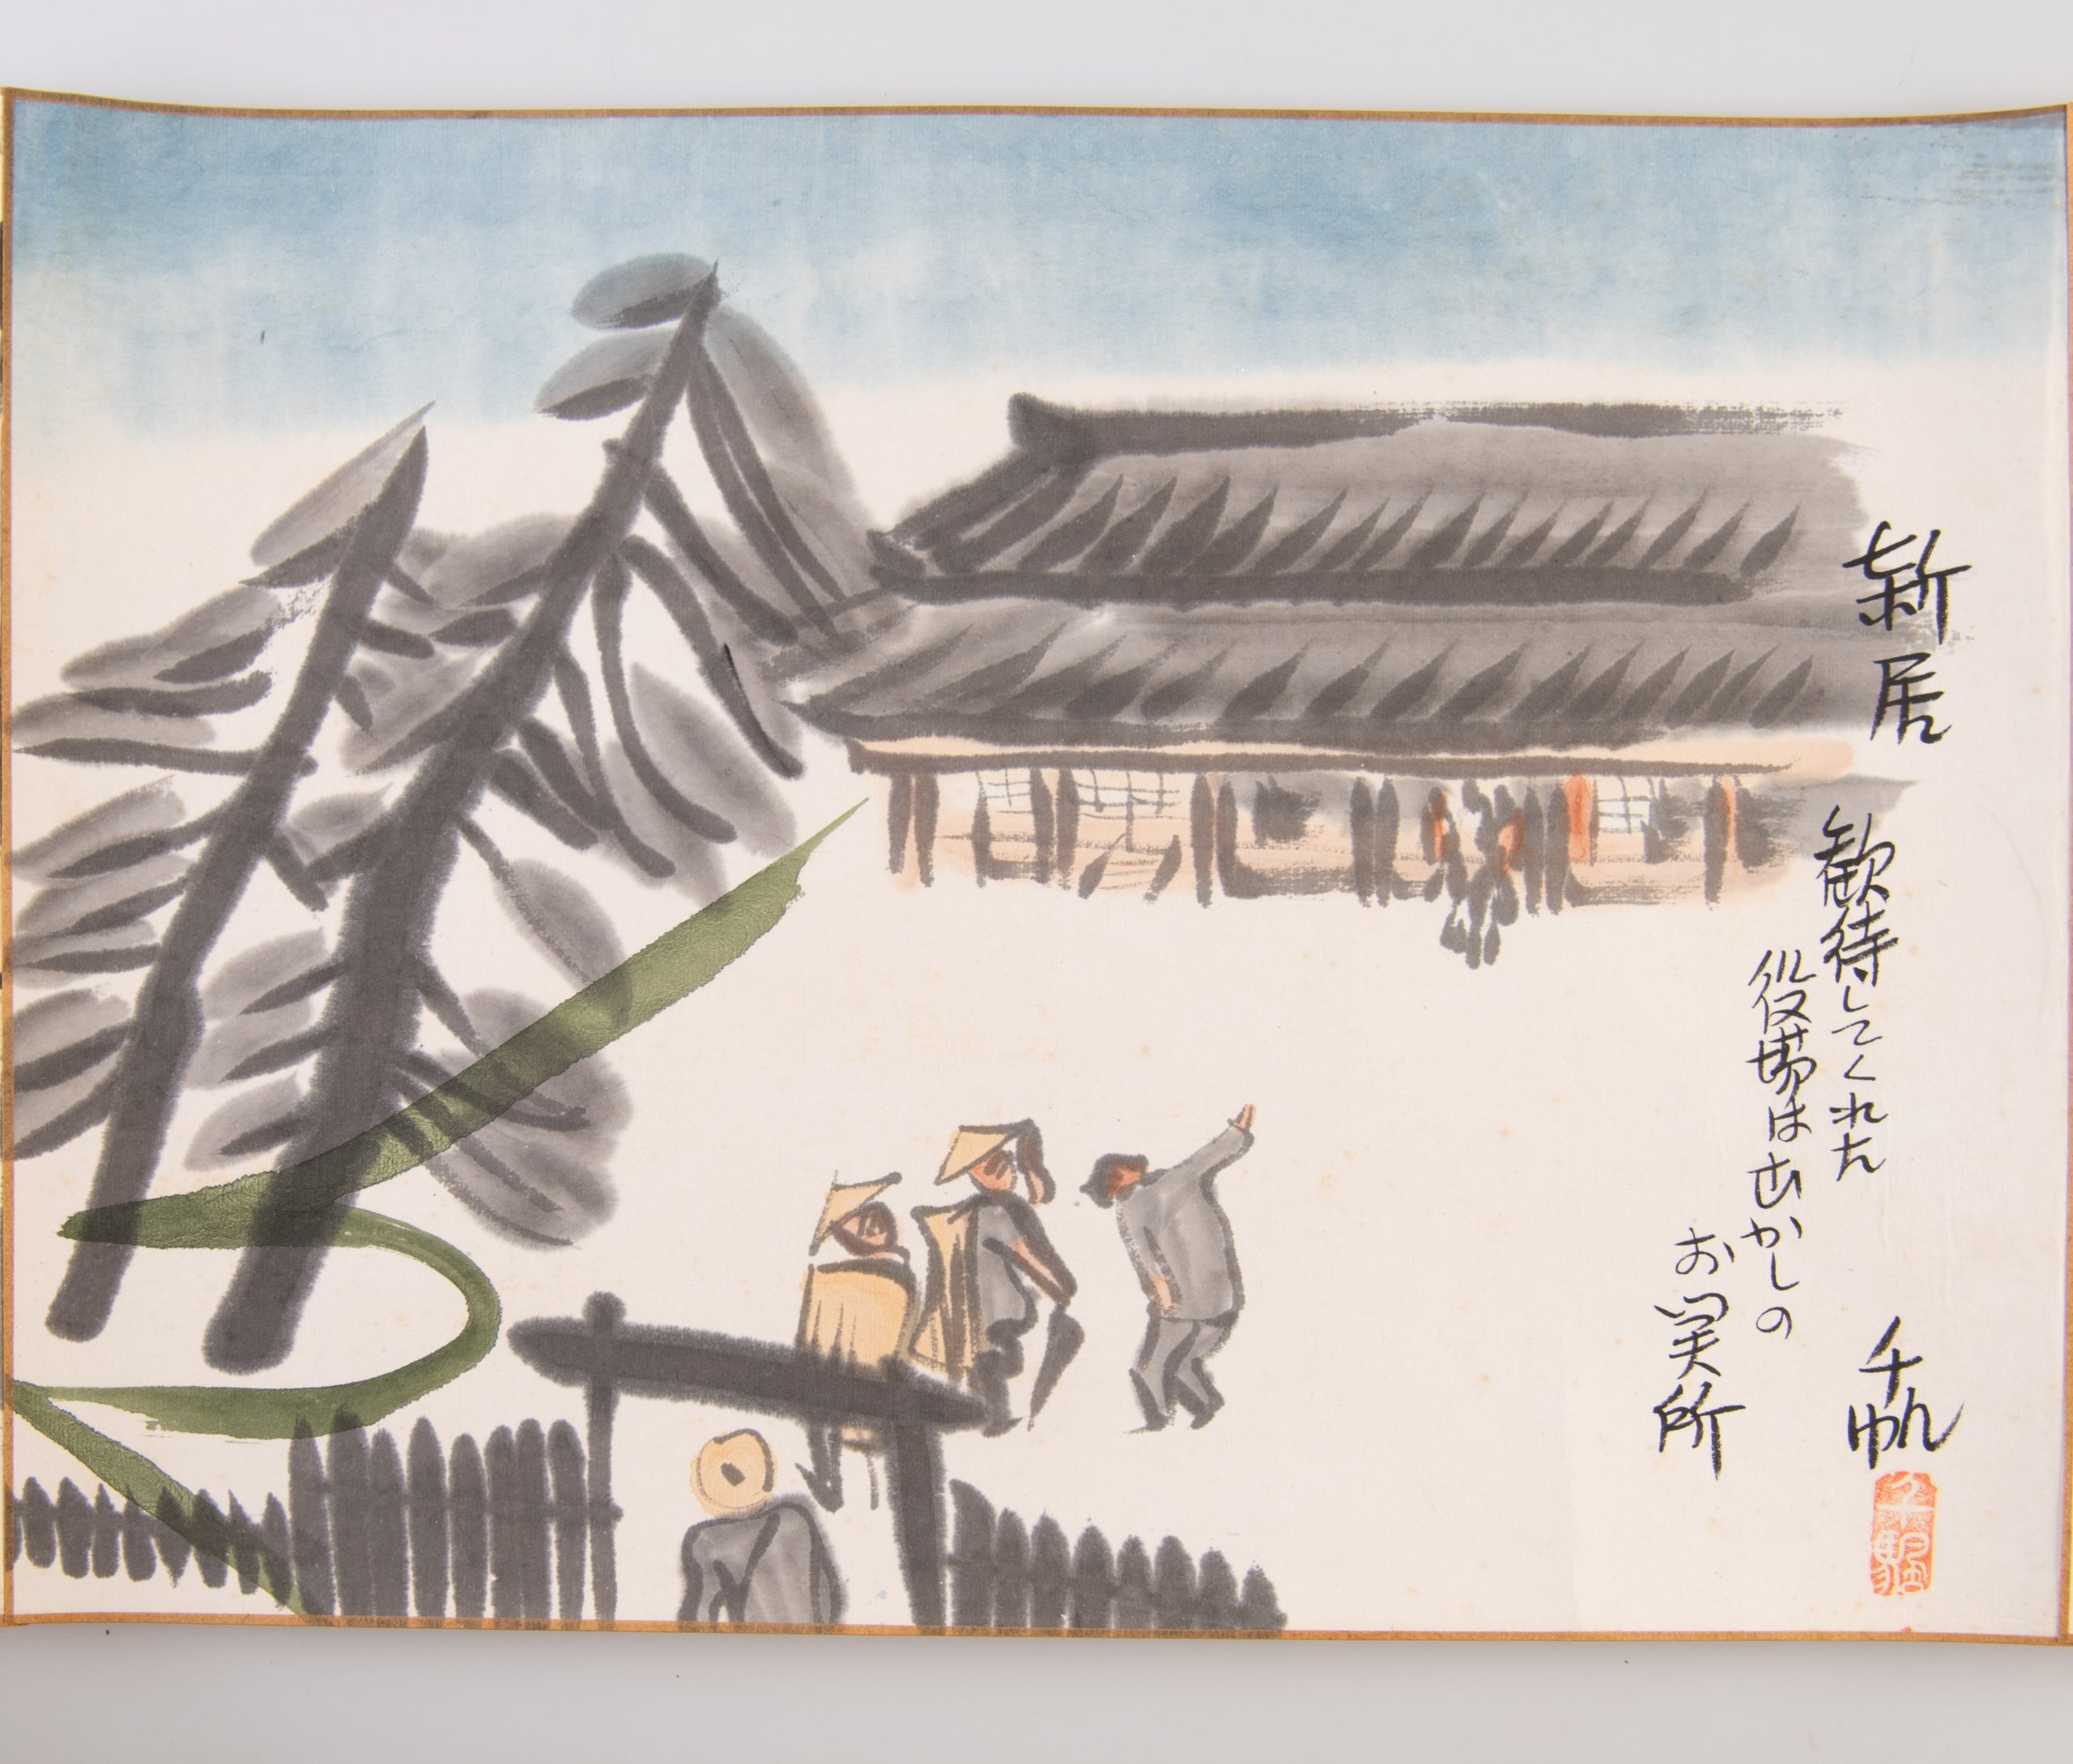 新居
歓待してくれた
役場はむかしの
お関所
千帆